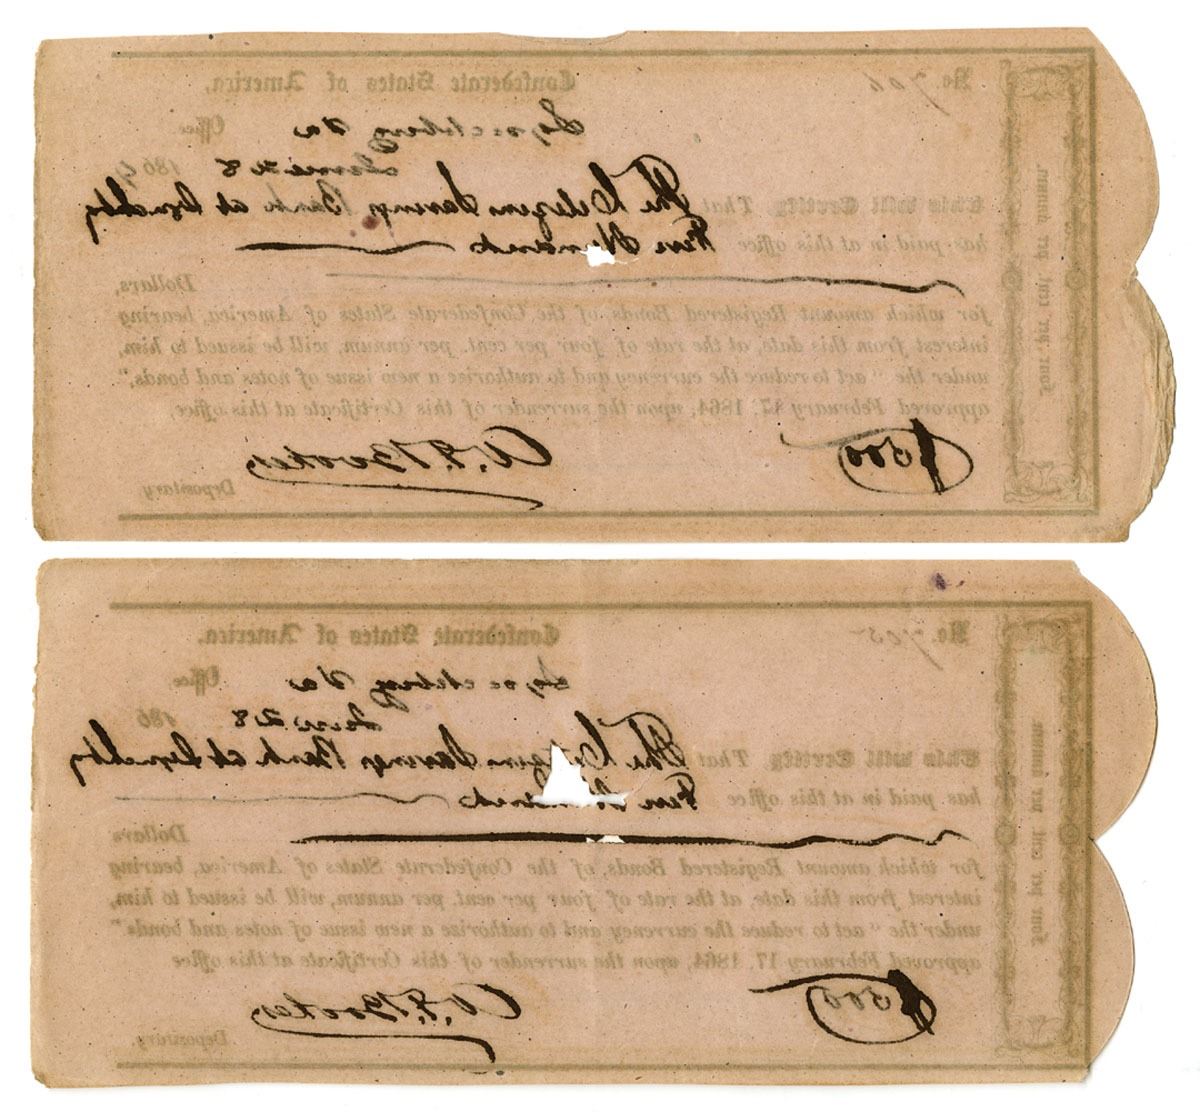 No. 706
Confederate States of America,
Lynchburg Va Office
June 28 1864
This will Certify, That The Citizens Savings Bank at Lynchbg
has paid in at this office Five Hundred
Dollars,
for which amount Registered Bonds of the Confederate States of America, bearing
interest from this date, at the rate of four per cent. per annum, will be issued to him,
under the "act to reduce the currency and to authorize a new issue of notes and bonds,"
approved February 17, 1864, upon the surrender of this Certificate at this office.
$500
Depositary.
Four per cent. per annum.
No. 705
Confederate States of America.
Lynchburg Va Office.
June 28 186
This will Certify, That The Citizens Savings Bank at Lynchbg
has paid in at this office Five Hundred
Dollars
for which amount Registered Bonds, of the Confederate States of America, bearing
interest from this date, at the rate of four per cent. per annum, will be issued to him,
under the "act to reduce the currency and to authorize a new issue of notes and bonds"
approved February 17, 1864, upon the surrender of this Certificate at this office
$500
Depositary.
Four per cent per annum